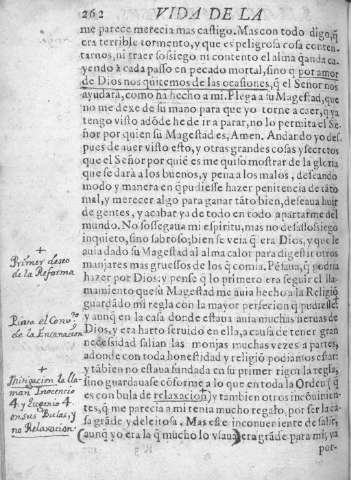 262 VIDA DE LA
me parece merecia mas castigo. Mas con todo digo, q̃
era terrible tormento, y que es peligrosa cosa conten-
tarnos, ni traer sossiego ni contento el alma q̃ anda ca-
yendo à cada passo en pecado mortal, sino q̃ por amor
de Dios nos quitemos de las ocasiones, q̃ el Señor nos
ayudarà, como ha hecho a mi. Plega a su Magestad, que
no me dexe de su mano para que yo torne a caer, q̃ ya
tengo visto adòde he de ir a parar, no lo permita el Se-
ñor por quien su Magestad es, Amen. Andando yo des-
pues de auer visto esto, y otras grandes cosas y secretos
que el Señor por quiẽ es me quiso mostrar de la gloria
que se darà a los buenos, y pena a los malos, desseando
modo y manera en q̃ pudiesse hazer penitencia de tãto
mal, y merecer algo para ganar tãto bien, deseaua huir
de gentes, y acabar ya de todo en todo apartarme del
mundo. No sossegaua mi espiritu, mas no desassossiego
inquieto, sino sabroso; bien se veia q̃ era Dios, y que le
auia dado su Magestad al alma calor para digerir otros
manjares mas gruessos de los q̃ comia. Pẽsaua, q̃ podria
hazer por Dios; y pensè q̃ lo primero era seguir el lla-
mamiento que su Magestad me auia hecho a la Religiõ
guardãdo mi regla con la mayor perfecion q̃ pudiesse:
y aunq̃ en la casa donde estaua auia muchas sieruas de
Dios, y era harto seruido en ella, a causa de tener gran
necessidad salian las monjas muchas vezes a partes,
adonde con toda honestidad y religiõ podiamos estar:
y tãbien no estaua fundada en su primer rigor la regla,
sino guardauase cõforme a lo que en toda la Orden (q̃
es con bula de relaxacion) y tambien otros inconuinien-
tes, q̃ me parecia a mi tenia mucho regalo, por ser la ca-
sa grãde y deleitosa. Mas este inconueniente de salir,
(aunq̃ yo era la q̃ mucho lo vsaua) era grãde para mi, ya
por-
+
Primer deseo
de la Reforma
Pinta el Convto
de la Encarnacion
+
Mitigacion la lla-
man Inocencio
4. y Eugenio 4.
en sus Bulas, y
no Relaxacion.